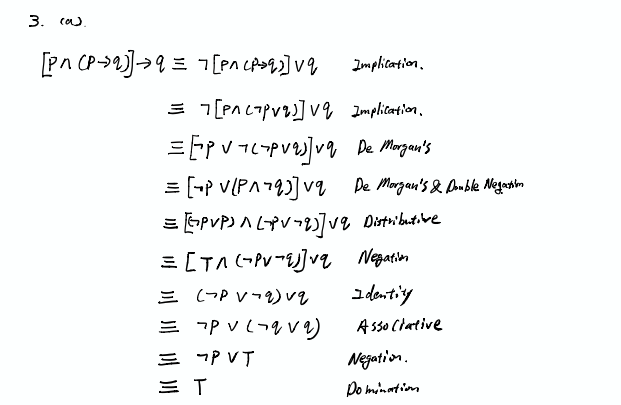 3. (a).
[P∧(P→q)]→q ≡ ¬[P∧(P→q)]∨q Implication.
≡ ¬[P∧(¬P∨q)]∨q Implication.
≡ [¬P ∨ ¬(¬P∨q)]∨q De Morgan's
≡ [¬P ∨(P∧¬q)]∨q De Morgan's & Double Negation
≡ [(¬P∨P) ∧ (¬P∨¬q)]∨q Distributive
≡ [T∧(¬P∨¬q)]∨q Negation
≡ (¬P ∨ ¬q)∨q Identity
≡ ¬P ∨ (¬q ∨ q) Associative
≡ ¬P ∨ T Negation.
≡ T Domination